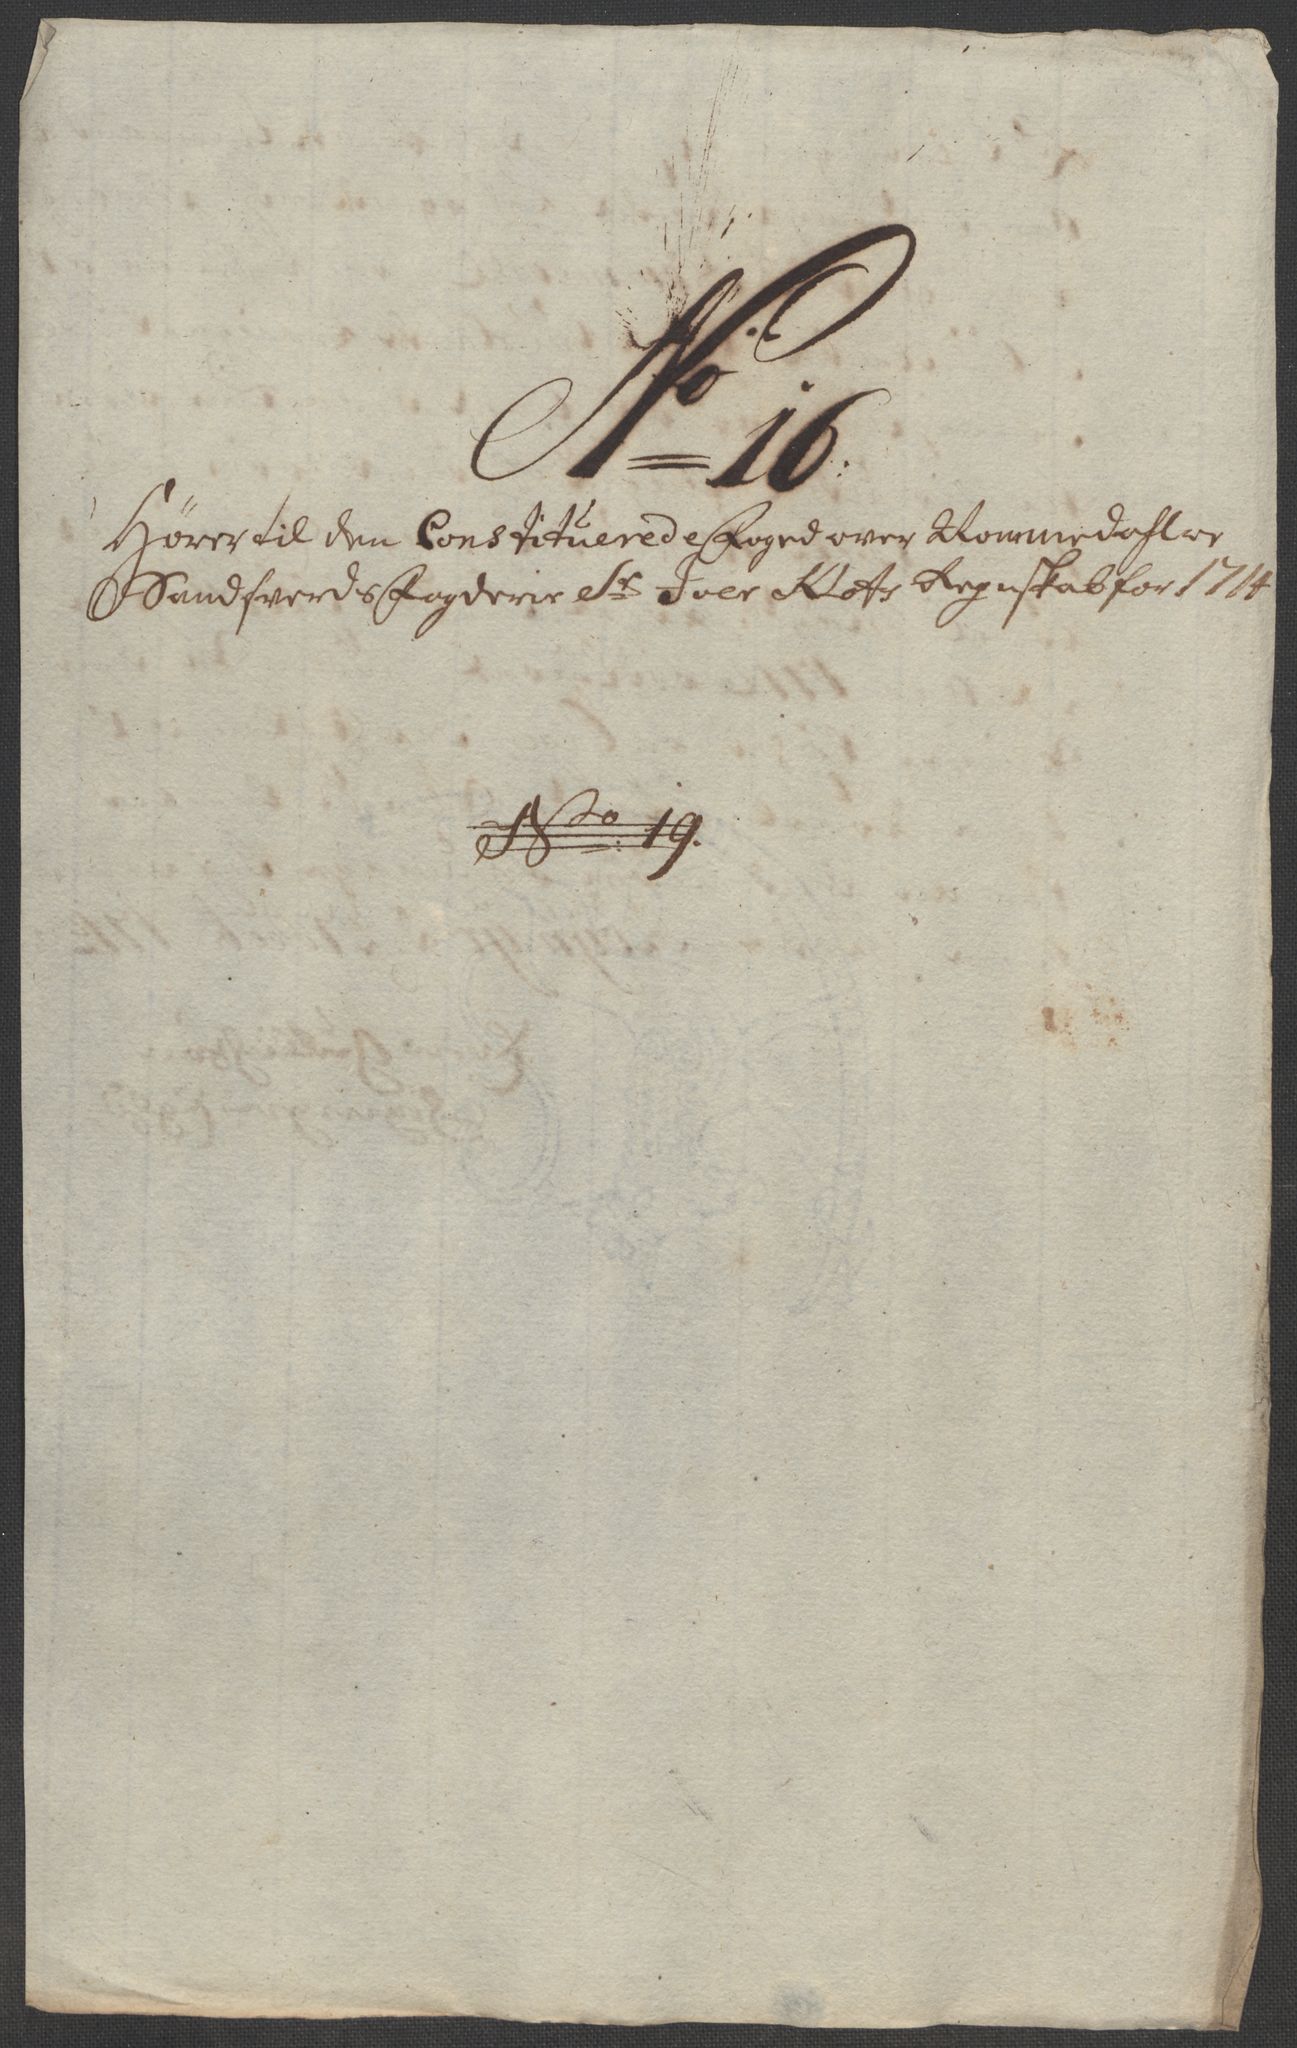 No 16.
Hører til den Constituerede Foged over Nommedahl oc
Sandsverds Fogderie Sr Iver Regnskab for 1714
No. 19.